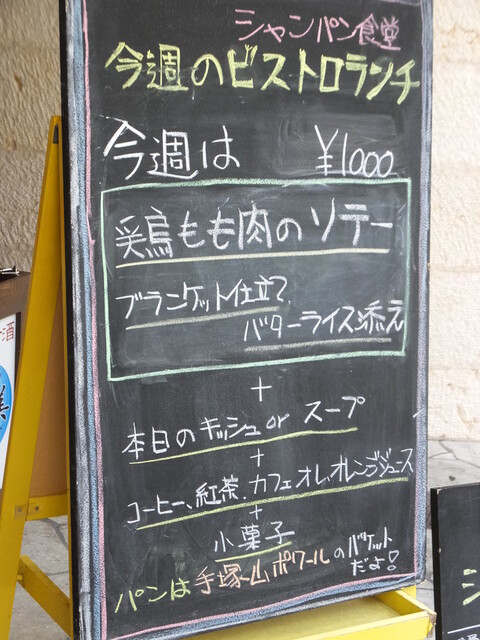 シャンパン食堂
今週のビストロランチ
今週は ¥1000
鶏もも肉のソテー
ブランケット仕立て、
バターライス添え
+
本日のキッシュor スープ
+
コーヒー、紅茶、カフェオレ、オレンジジュース
+
小菓子
パンは手塚山ポワールのバケットだよ!
酒